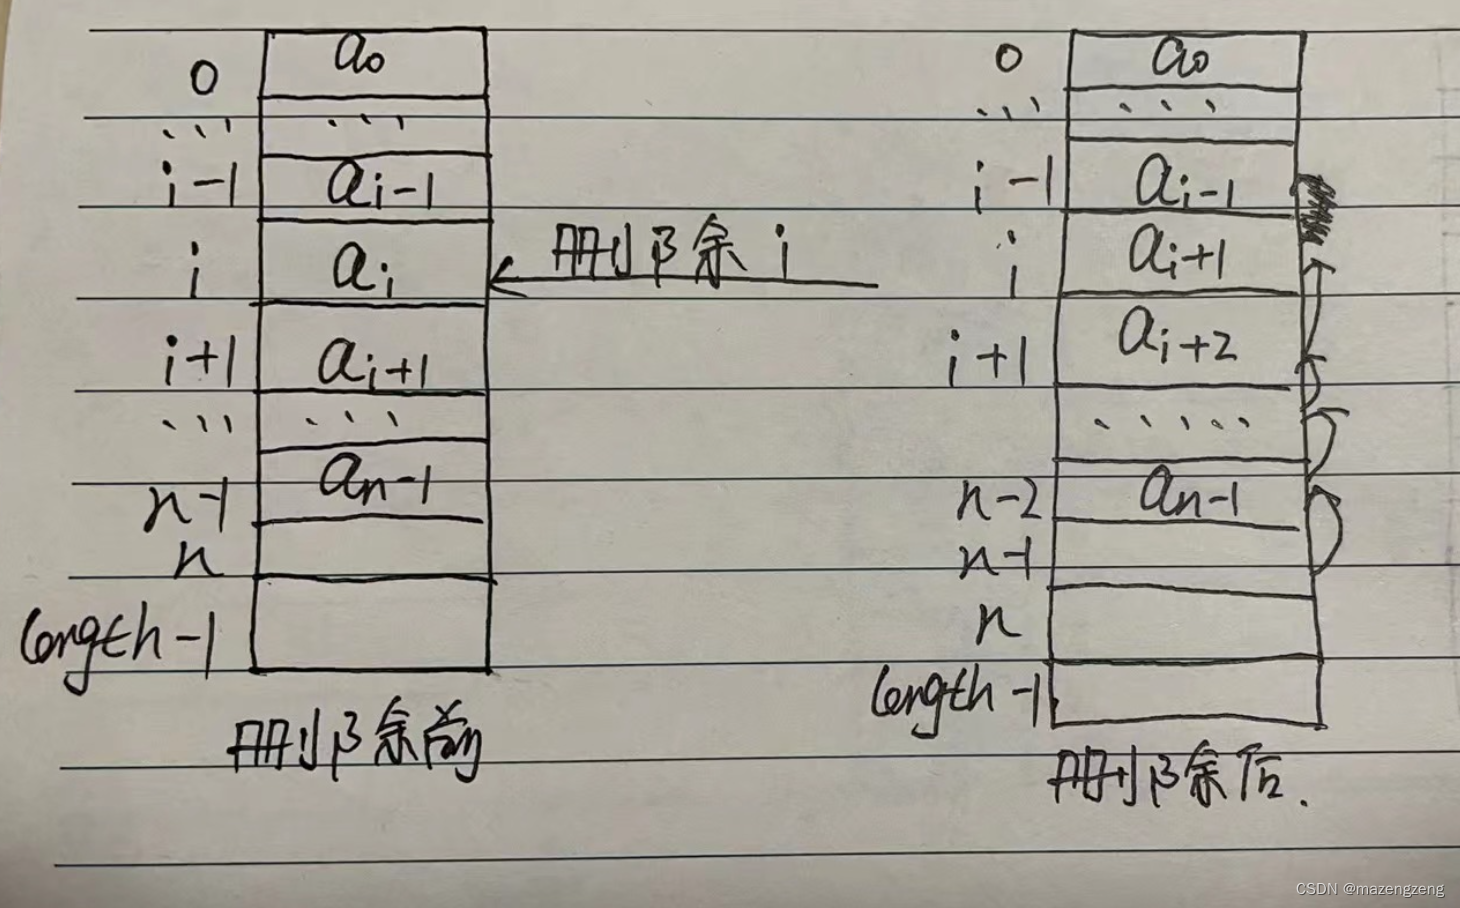 0 a0
... ...
i-1 ai-1
i ai
i+1 ai+1
... ...
n-1 an-1
n
length-1
删除前
删除 i
0 a0
... ...
i-1 ai-1
i ai+1
i+1 ai+2
.....
n-2 an-1
n-1
n
length-1
删除后.
CSDN @mazengzeng